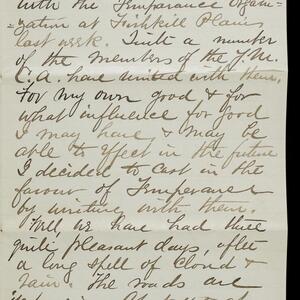 with the Temperance Organi-
zation at Fishkill Plains
last week. Quite a number
of the members of the Y.M.
C.A. have united with them.
For my own good & for
what influence for good
I may have, & may be
able to effect in the future
I decided to cast in the
favour of Temperance
by uniting with them.
Well, we have had three
quite pleasant days, after
a long spell of Cloud &
rain. The roads are